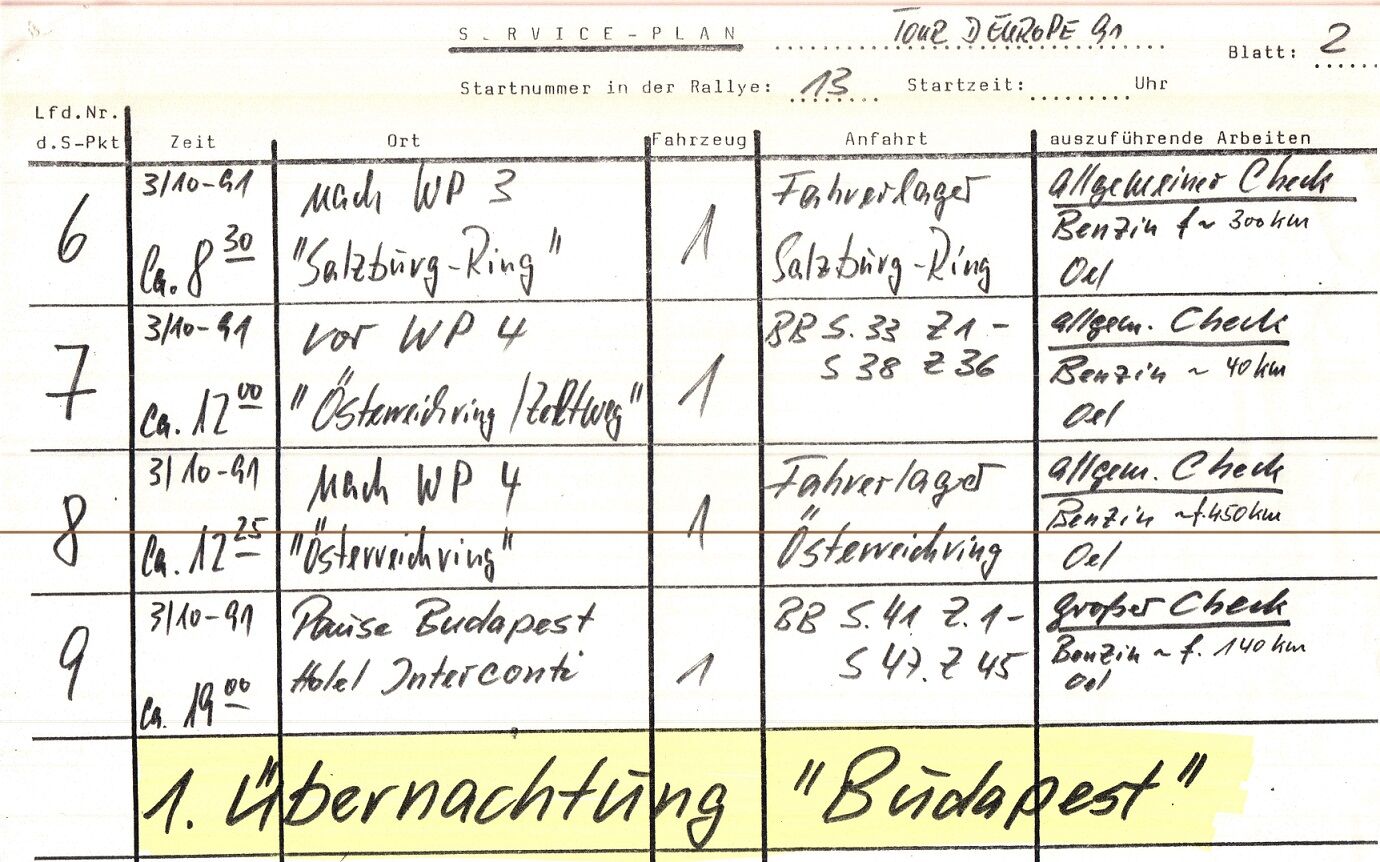 SERVICE-PLAN TOUR D'EUROPE 91 Blatt: 2
Startnummer in der Rallye: 13 Startzeit: ........ Uhr
Lfd.Nr.
d.S-Pkt Zeit Ort Fahrzeug Anfahrt auszuführende Arbeiten
6 3/10-91 nach WP 3 1 Fahrerlager allgemeiner Check
Benzin f ~ 300 km
Ca. 8 30 "Salzburg-Ring" Salzburg-Ring Oel
7 3/10-91 vor WP 4 1 BB S. 33 Z 1 - allgem. Check
S 38 Z 36 Benzin ~ 40 km
Ca. 12 00 "Österreichring /Zeltweg" Oel
8 3/10-91 nach WP 4 1 Fahrerlager allgem. Check
Benzin ~ f. 450 km
Ca. 12 25 "Österreichring" Österreichring Oel
9 3/10-91 Pause Budapest 1 BB S. 41 Z. 1 - großer Check
Hotel Interconti S 47. Z 45 Benzin ~ f. 140 km
Ca. 19 00 Oel
1. Übernachtung "Budapest"